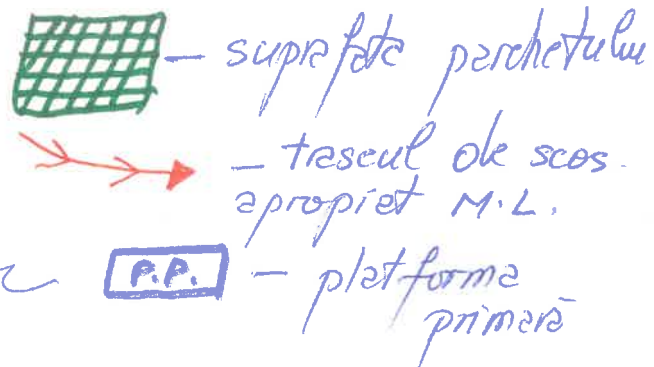 – suprafata parchetului
– traseul de scos.
apropiat M.L.
P.P. – platforma
primară